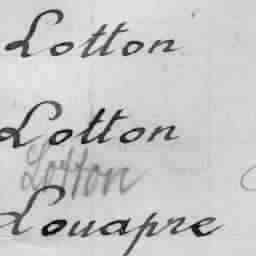 Lotton
Lotton
Lotton
Louapre